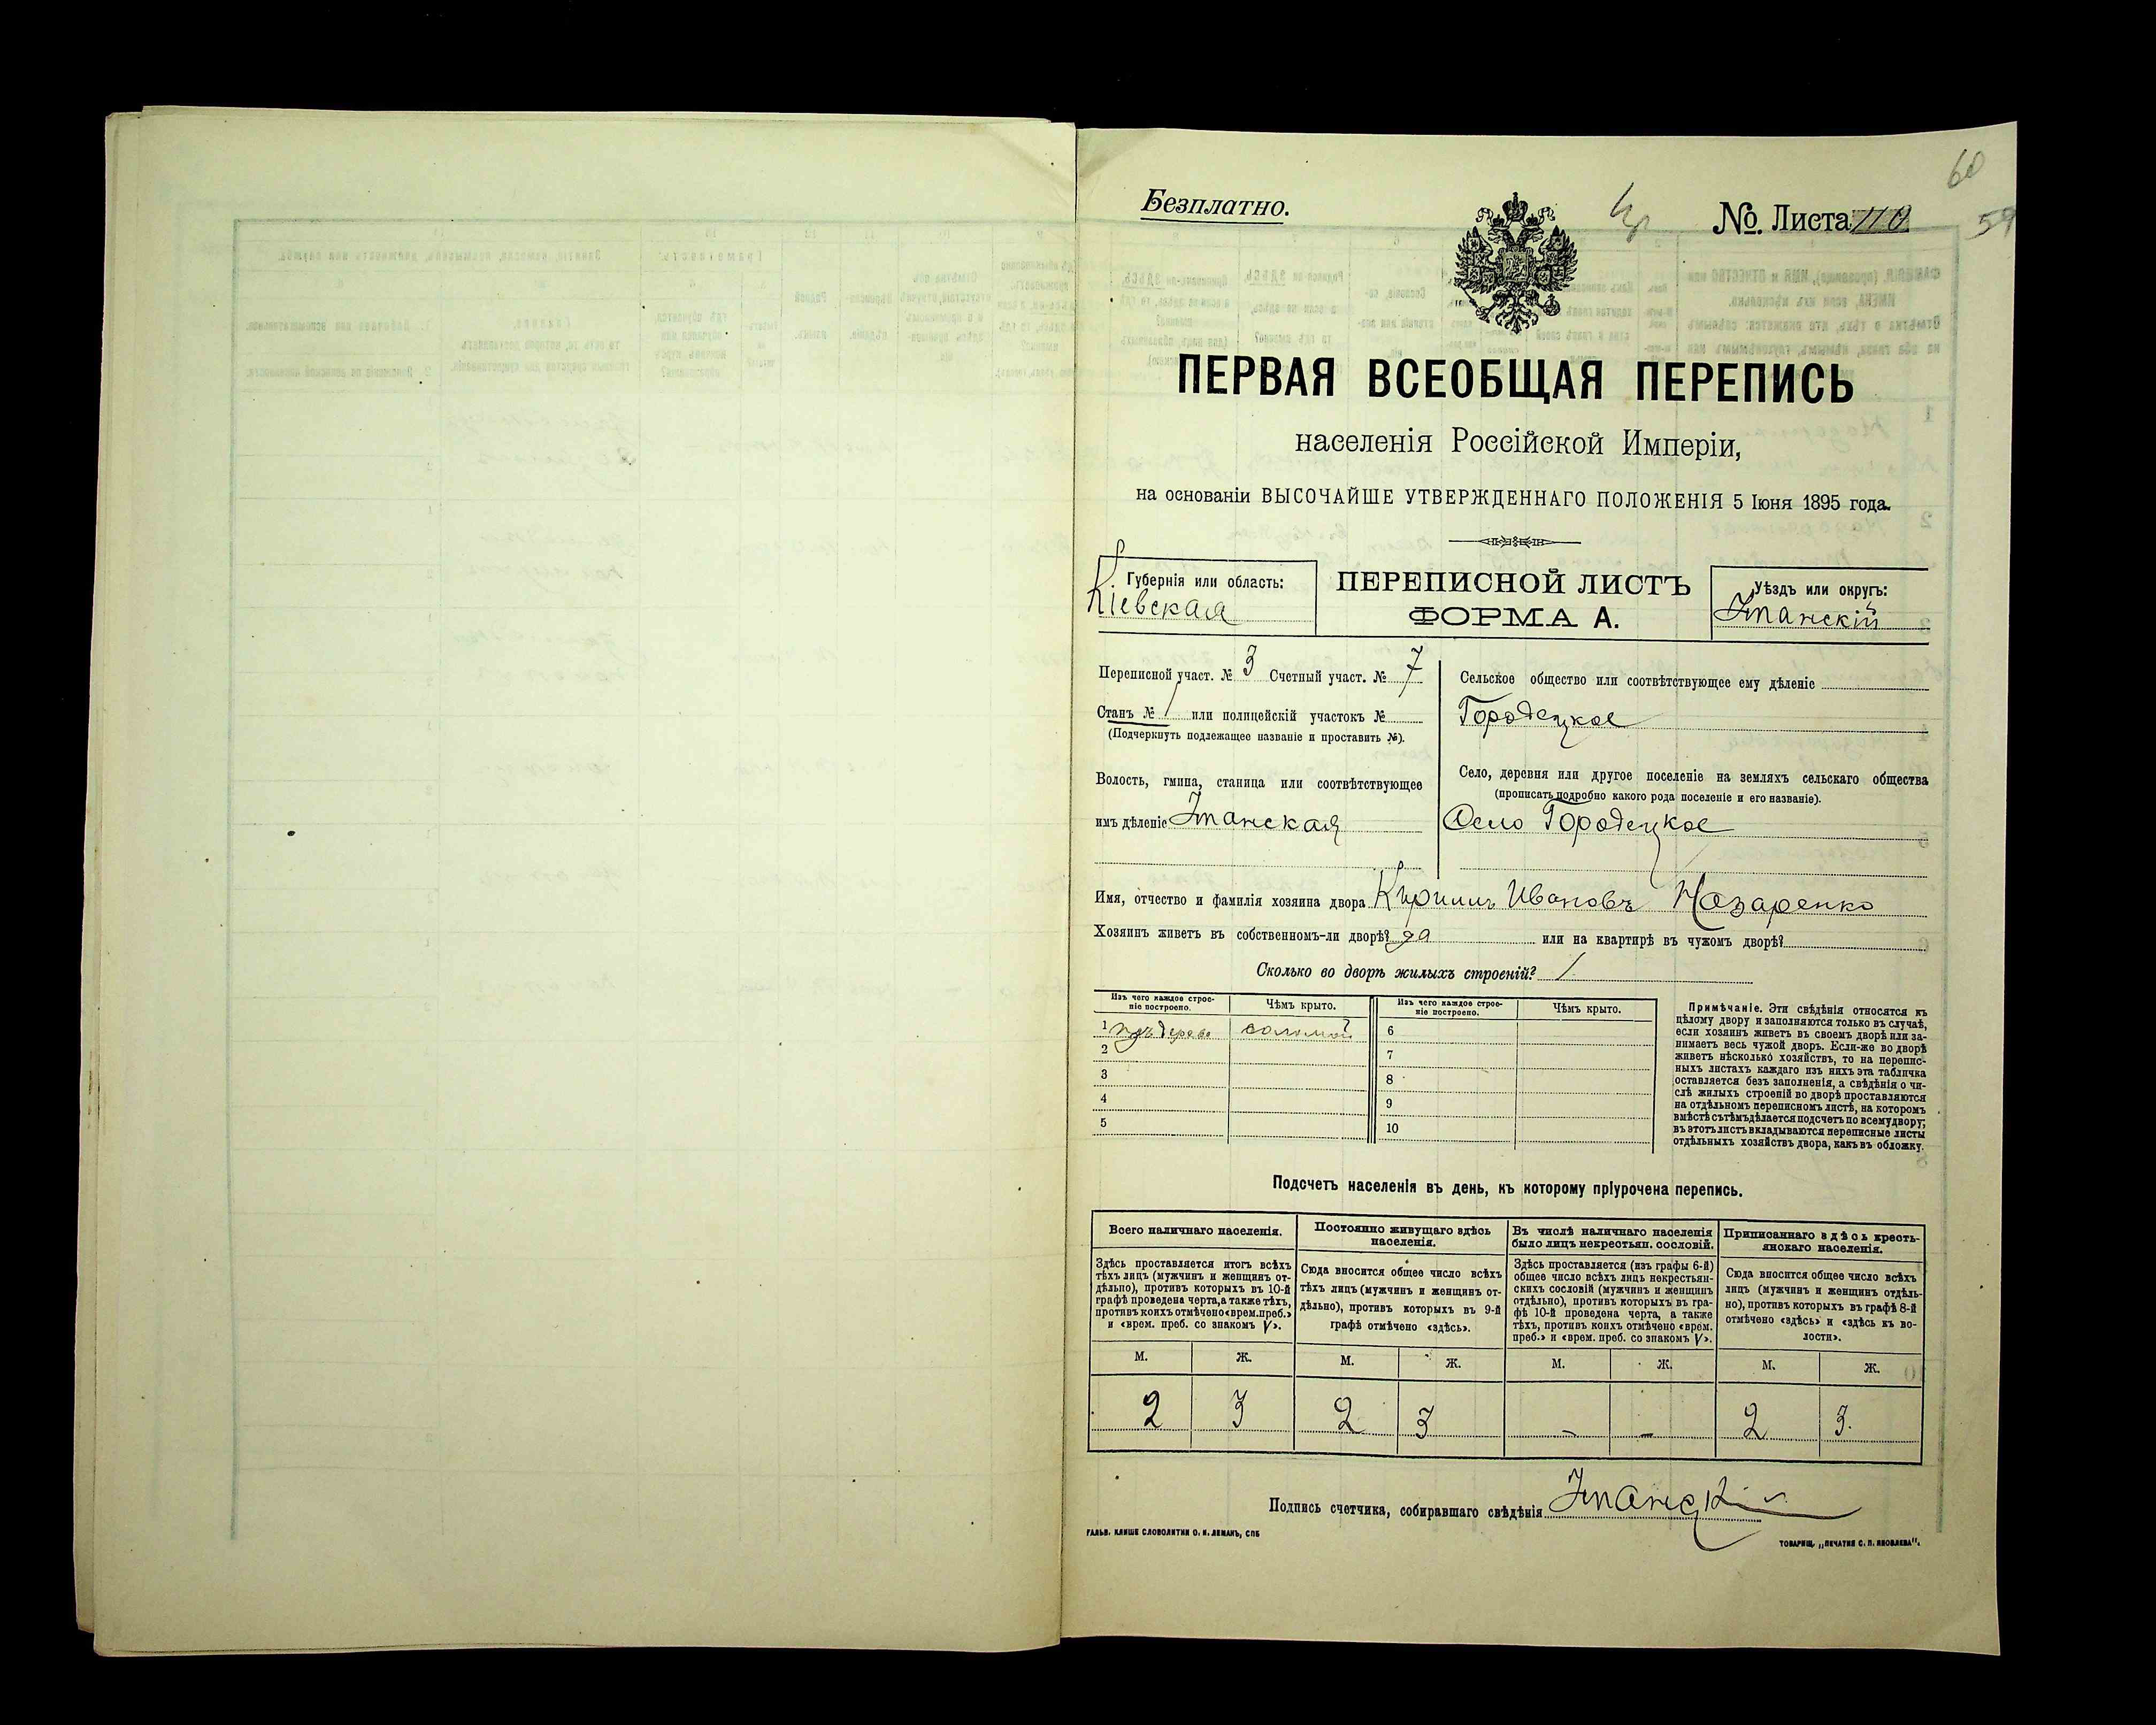 60
Безплатно.
№. Листа 110
59
ПЕРВАЯ ВСЕОБЩАЯ ПЕРЕПИСЬ
населенія Россійской Имперіи,
на основаніи ВЫСОЧАЙШЕ УТВЕРЖДЕННАГО ПОЛОЖЕНІЯ 5 Іюня 1895 года.
Губернія или область:
Кіевская
ПЕРЕПИСНОЙ ЛИСТЪ
ФОРМА А.
Уѣздъ или округъ:
Уманскій
Переписной участ. № 3 Счетный участ. № 7
Станъ № 1 или полицейскій участокъ №
(Подчеркнуть подлежащее названіе и проставить №).
Волость, гмина, станица или соотвѣтствующее
имъ дѣленіе Уманская
Сельское общество или соотвѣтствующее ему дѣленіе
Городецкое
Село, деревня или другое поселеніе на земляхъ сельскаго общества
(прописать подробно какого рода поселеніе и его названіе).
Село Городецкое
Имя, отчество и фамилія хозяина двора Кирилъ Ивановъ Назаренко
Хозяинъ живетъ въ собственномъ-ли дворѣ? да или на квартирѣ въ чужомъ дворѣ?
Сколько во дворѣ жилыхъ строеній? 1
Изъ чего каждое строе-
ніе построено.
Чѣмъ крыто.
Изъ чего каждое строе-
ніе построено.
Чѣмъ крыто.
1 изъ дерева соломой 6
2 7
3 8
4 9
5 10
Примѣчаніе. Эти свѣдѣнія относятся къ
цѣлому двору и заполняются только въ случаѣ,
если хозяинъ живетъ въ своемъ дворѣ или за-
нимаетъ весь чужой дворъ. Если-же во дворѣ
живетъ нѣсколько хозяйствъ, то на перепис-
ныхъ листахъ каждаго изъ нихъ эта табличка
оставляется безъ заполненія, а свѣдѣнія о чи-
слѣ жилыхъ строеній во дворѣ проставляются
на отдѣльномъ переписномъ листѣ, на которомъ
вмѣстѣ съ тѣмъ дѣлается подсчетъ по всему двору;
въ этотъ листъ вкладываются переписные листы
отдѣльныхъ хозяйствъ двора, какъ въ обложку.
Подсчетъ населенія въ день, къ которому пріурочена перепись.
Всего наличнаго населенія.
Здѣсь проставляется итогъ всѣхъ
тѣхъ лицъ (мужчинъ и женщинъ от-
дѣльно), противъ которыхъ въ 10-й
графѣ проведена черта, а также тѣхъ,
противъ коихъ отмѣчено «врем. преб.»
и «врем. преб. со знакомъ V».
Постоянно живущаго здѣсь
населенія.
Сюда вносится общее число всѣхъ
тѣхъ лицъ (мужчинъ и женщинъ от-
дѣльно), противъ которыхъ въ 9-й
графѣ отмѣчено «здѣсь».
Въ числѣ наличнаго населенія
было лицъ некрестьян. сословій.
Здѣсь проставляется (изъ графы 6-й)
общее число всѣхъ лицъ некрестьян-
скихъ сословій (мужчинъ и женщинъ
отдѣльно), противъ которыхъ въ гра-
фѣ 10-й проведена черта, а также
тѣхъ, противъ коихъ отмѣчено «врем.
преб.» и «врем. преб. со знакомъ V».
Приписаннаго здѣсь кресть-
янскаго населенія.
Сюда вносится общее число всѣхъ
лицъ (мужчинъ и женщинъ отдѣль-
но), противъ которыхъ въ графѣ 8-й
отмѣчено «здѣсь» и «здѣсь къ во-
лости».
М. Ж. М. Ж. М. Ж. М. Ж.
2 3 2 3 - - 2 3.
Подпись счетчика, собиравшаго свѣдѣнія
ГАЛЬВ. КЛИШЕ СЛОВОЛИТНИ О. И. ЛЕМАНЪ, СПБ
ТОВАРИЩ. „ПЕЧАТНЯ С. П. ЯКОВЛЕВА".